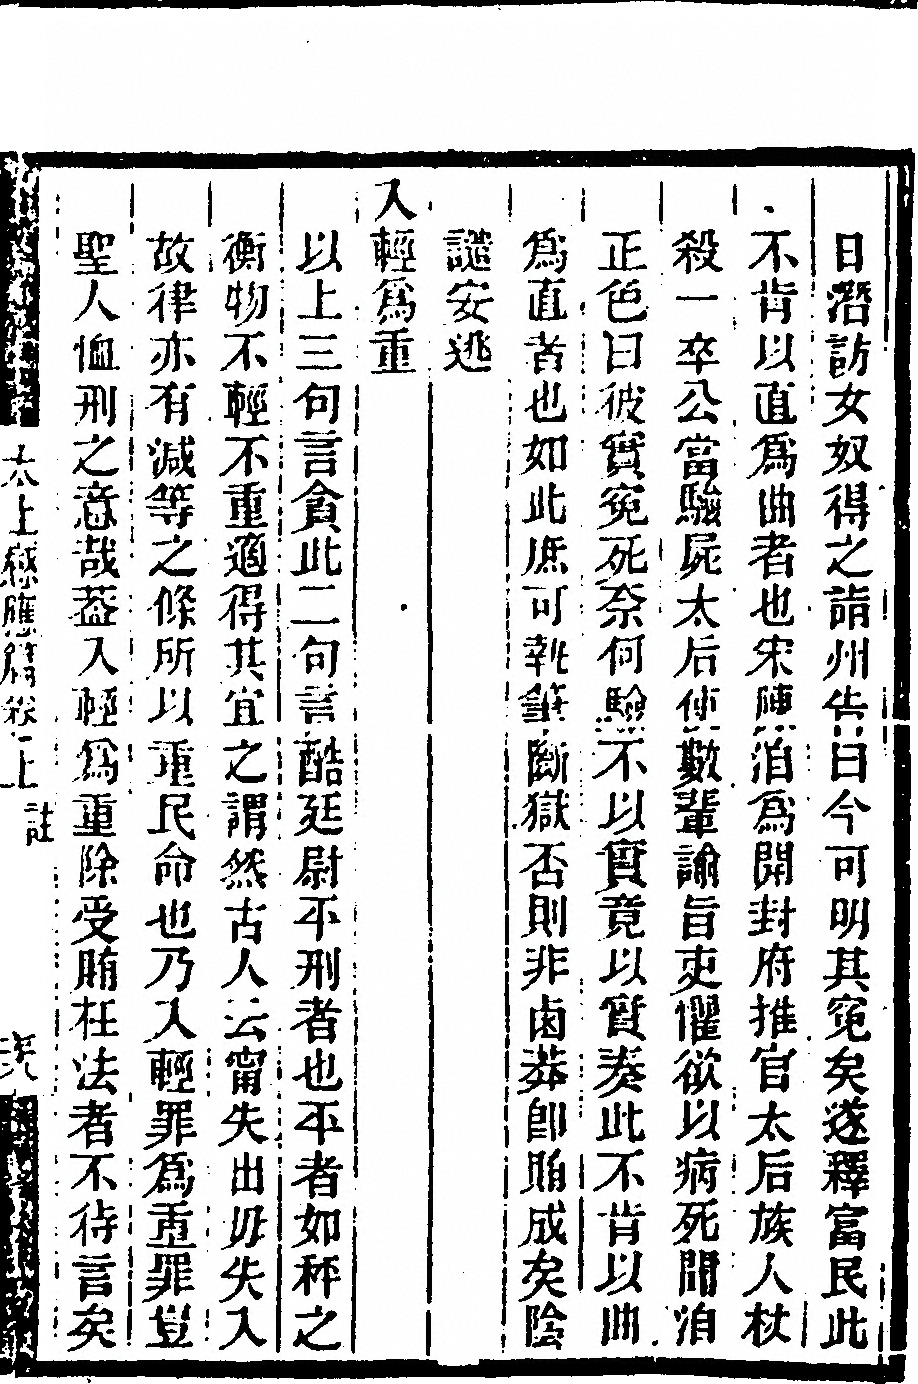 日潛訪女奴得之詣州告曰今可明其寃矣遂釋富民此
不肯以直爲曲者也宋陳洎爲開封府推官太后族人杖
殺一卒公當驗屍太后使數輩諭旨吏懼欲以病死聞洎
正色曰彼實寃死奈何驗不以實竟以實奏此不肯以曲
爲直者也如此庶可執筆斷獄否則非鹵莽卽賄成矣陰
譴安逃
入輕爲重
以上三句言貪此二句言酷廷尉不刑者也平者如秤之
衡物不輕不重適得其宜之謂然古人云甯失出毋失入
故律亦有減等之條所以重民命也乃入輕罪爲重罪豈
聖人恤刑之意哉葢入輕爲重除受賄枉法者不待言矣
太上感應篇卷上 註